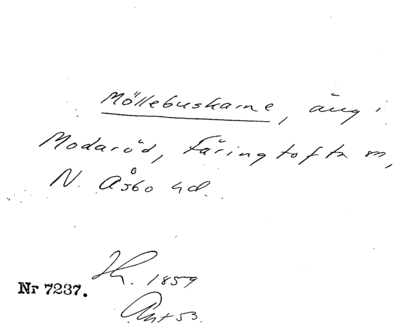 Möllebuskarne, äng i
Modaröd, Färingtofta sn,
N. Åsbo hd.
Nr 7237.
1859
Ant 53.